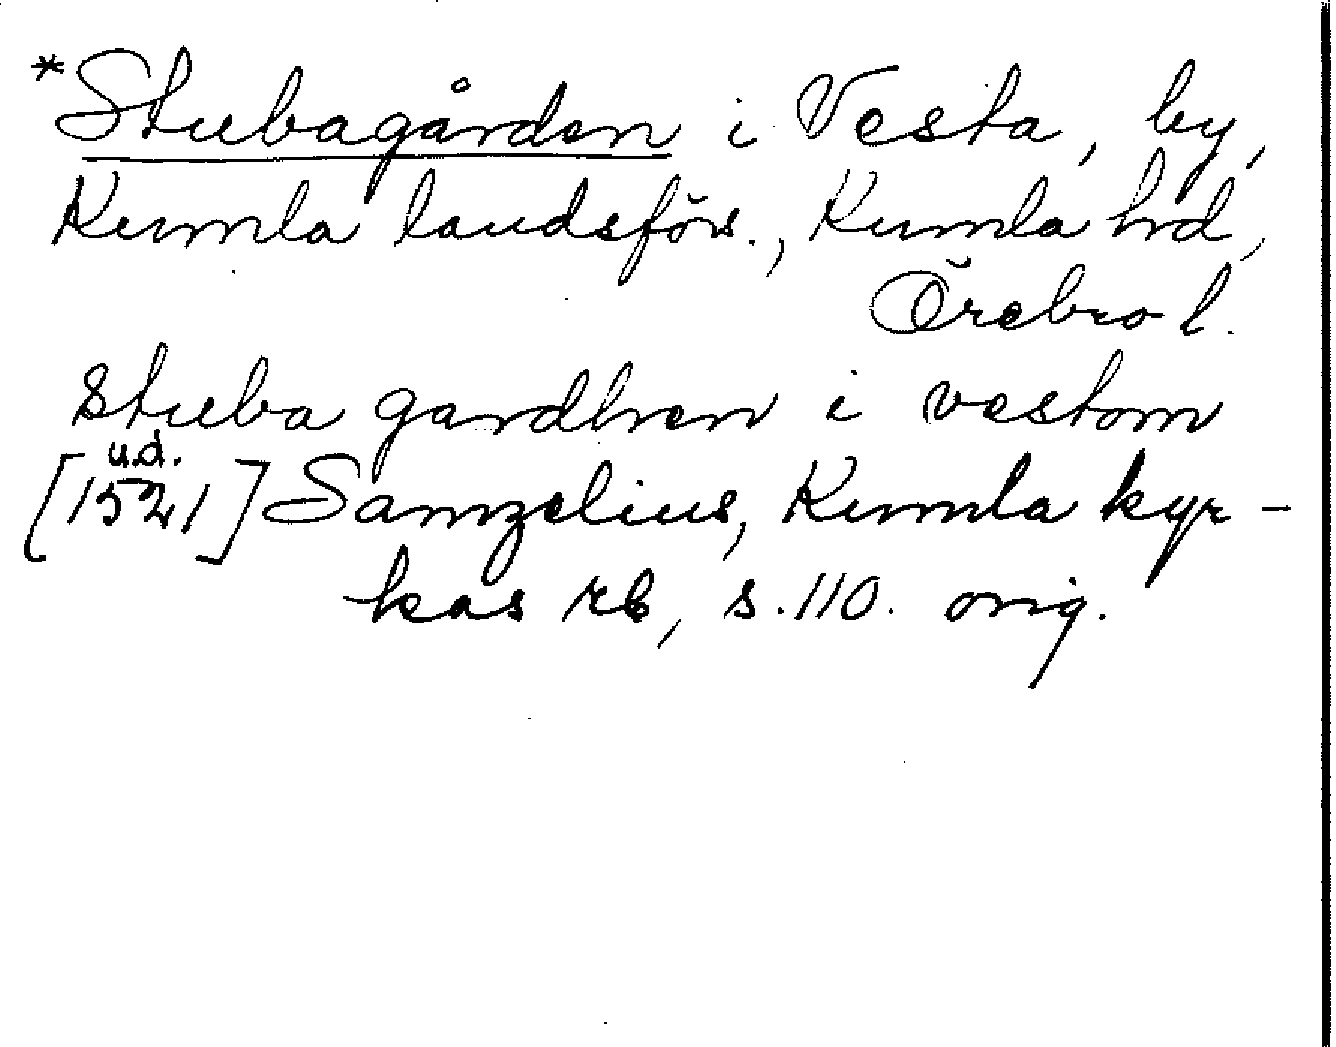 *Stubagården i Vesta, by,
Kumla landsförs., Kumla hd,
Örebro l.
stuba gardhren i vestom
u.d.
[1521] Samzelius, Kumla kyr-
kas rb, s. 110. orig.